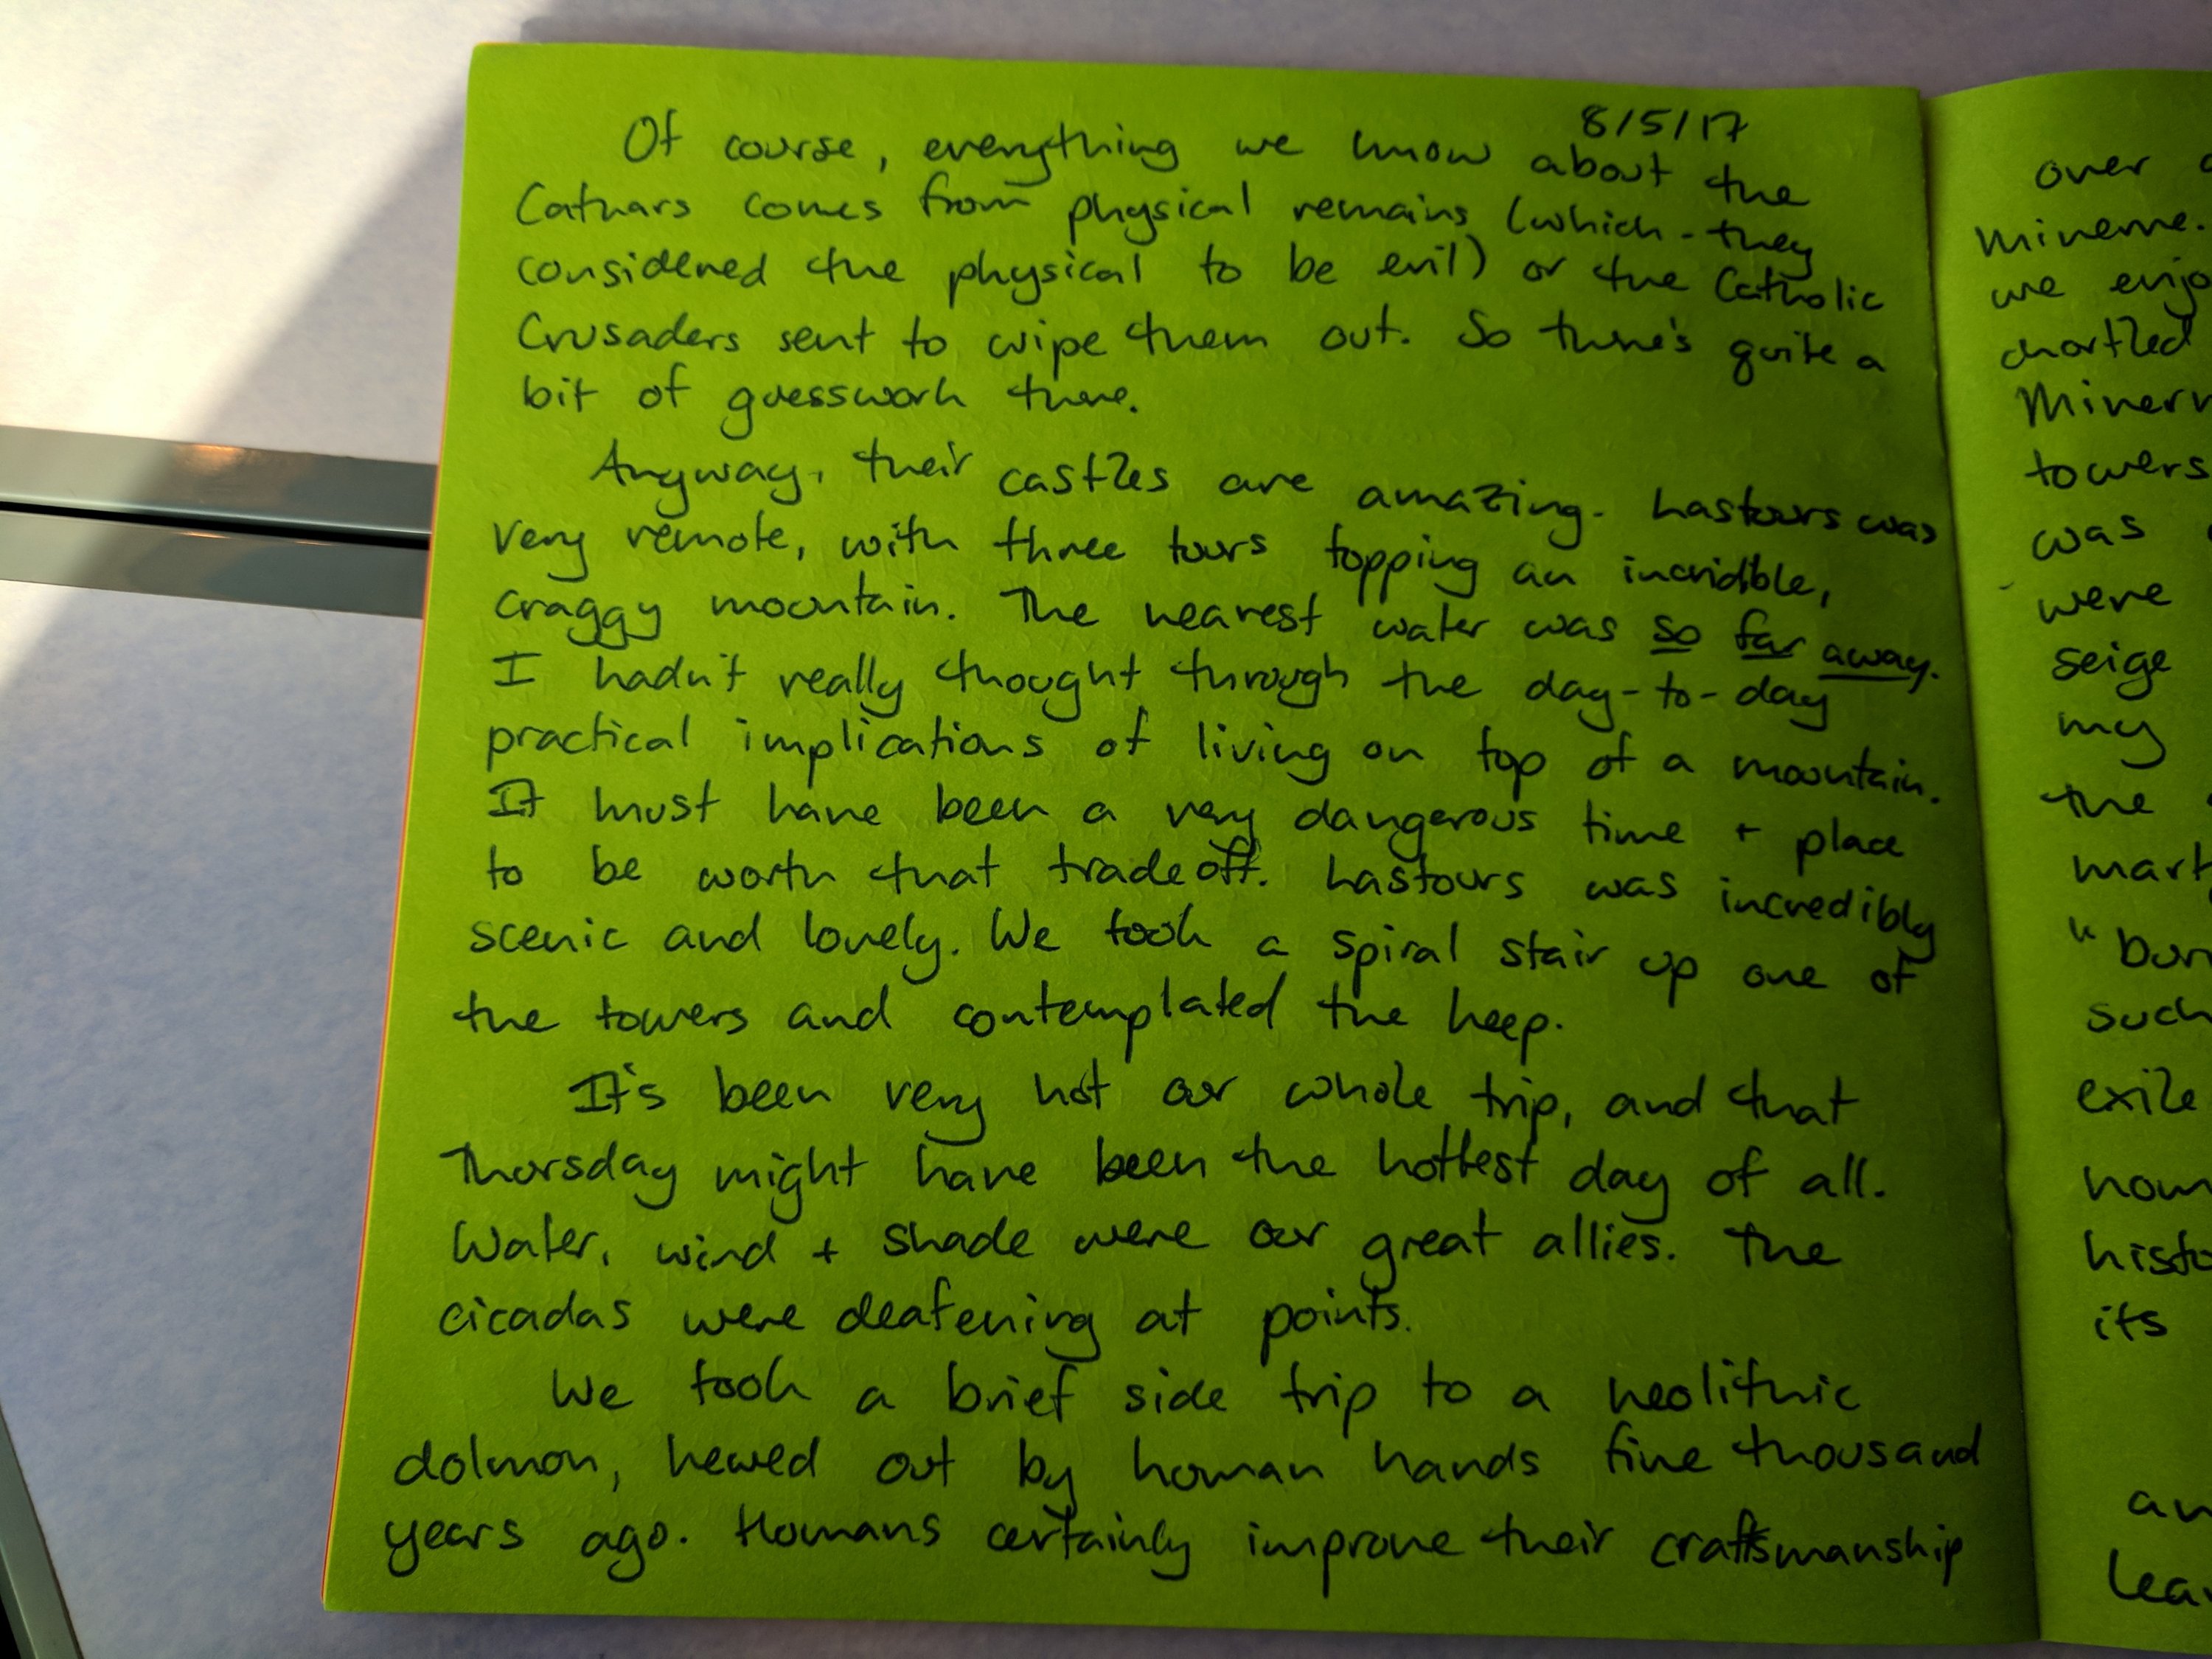 8/5/17
Of course, everything we know about the
Cathars comes from physical remains (which - they
considered the physical to be evil) or the Catholic
Crusaders sent to wipe them out. So there's quite a
bit of guesswork there.
Anyway, their castles are amazing. Lastours was
very remote, with three tours topping an incridible,
craggy mountain. The nearest water was so far away.
I hadn't really thought through the day-to-day
practical implications of living on top of a mountain.
It must have been a very dangerous time + place
to be worth that tradeoff. Lastours was incredibly
scenic and lovely. We took a spiral stair up one of
the towers and contemplated the keep.
It's been very hot our whole trip, and that
Thursday might have been the hottest day of all.
Water, wind + shade were our great allies. The
cicadas were deafening at points.
We took a brief side trip to a neolithic
dolmon, hewed out by human hands five thousand
years ago. Humans certainly improve their craftsmanship
over
Minerve.
we enjo
chortled
Minerv
towers
was
were
seige
my
the
mart
"bur
such
exile
hom
histo
its
an
lea